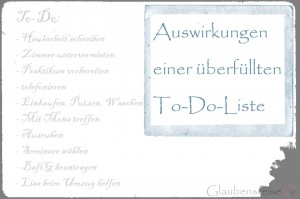 To-Do:
- Hausarbeit schreiben
- Zimmer untervermieten
- Praktikum vorbereiten
- telefonieren
- Einkaufen, Putzen, Waschen
- Mit Mona treffen
- Ausruhen
- Seminare wählen
- BaföG beantragen
- Lisa beim Umzug helfen
Auswirkungen
einer überfüllten
To-Do-Liste
Glaubensreise